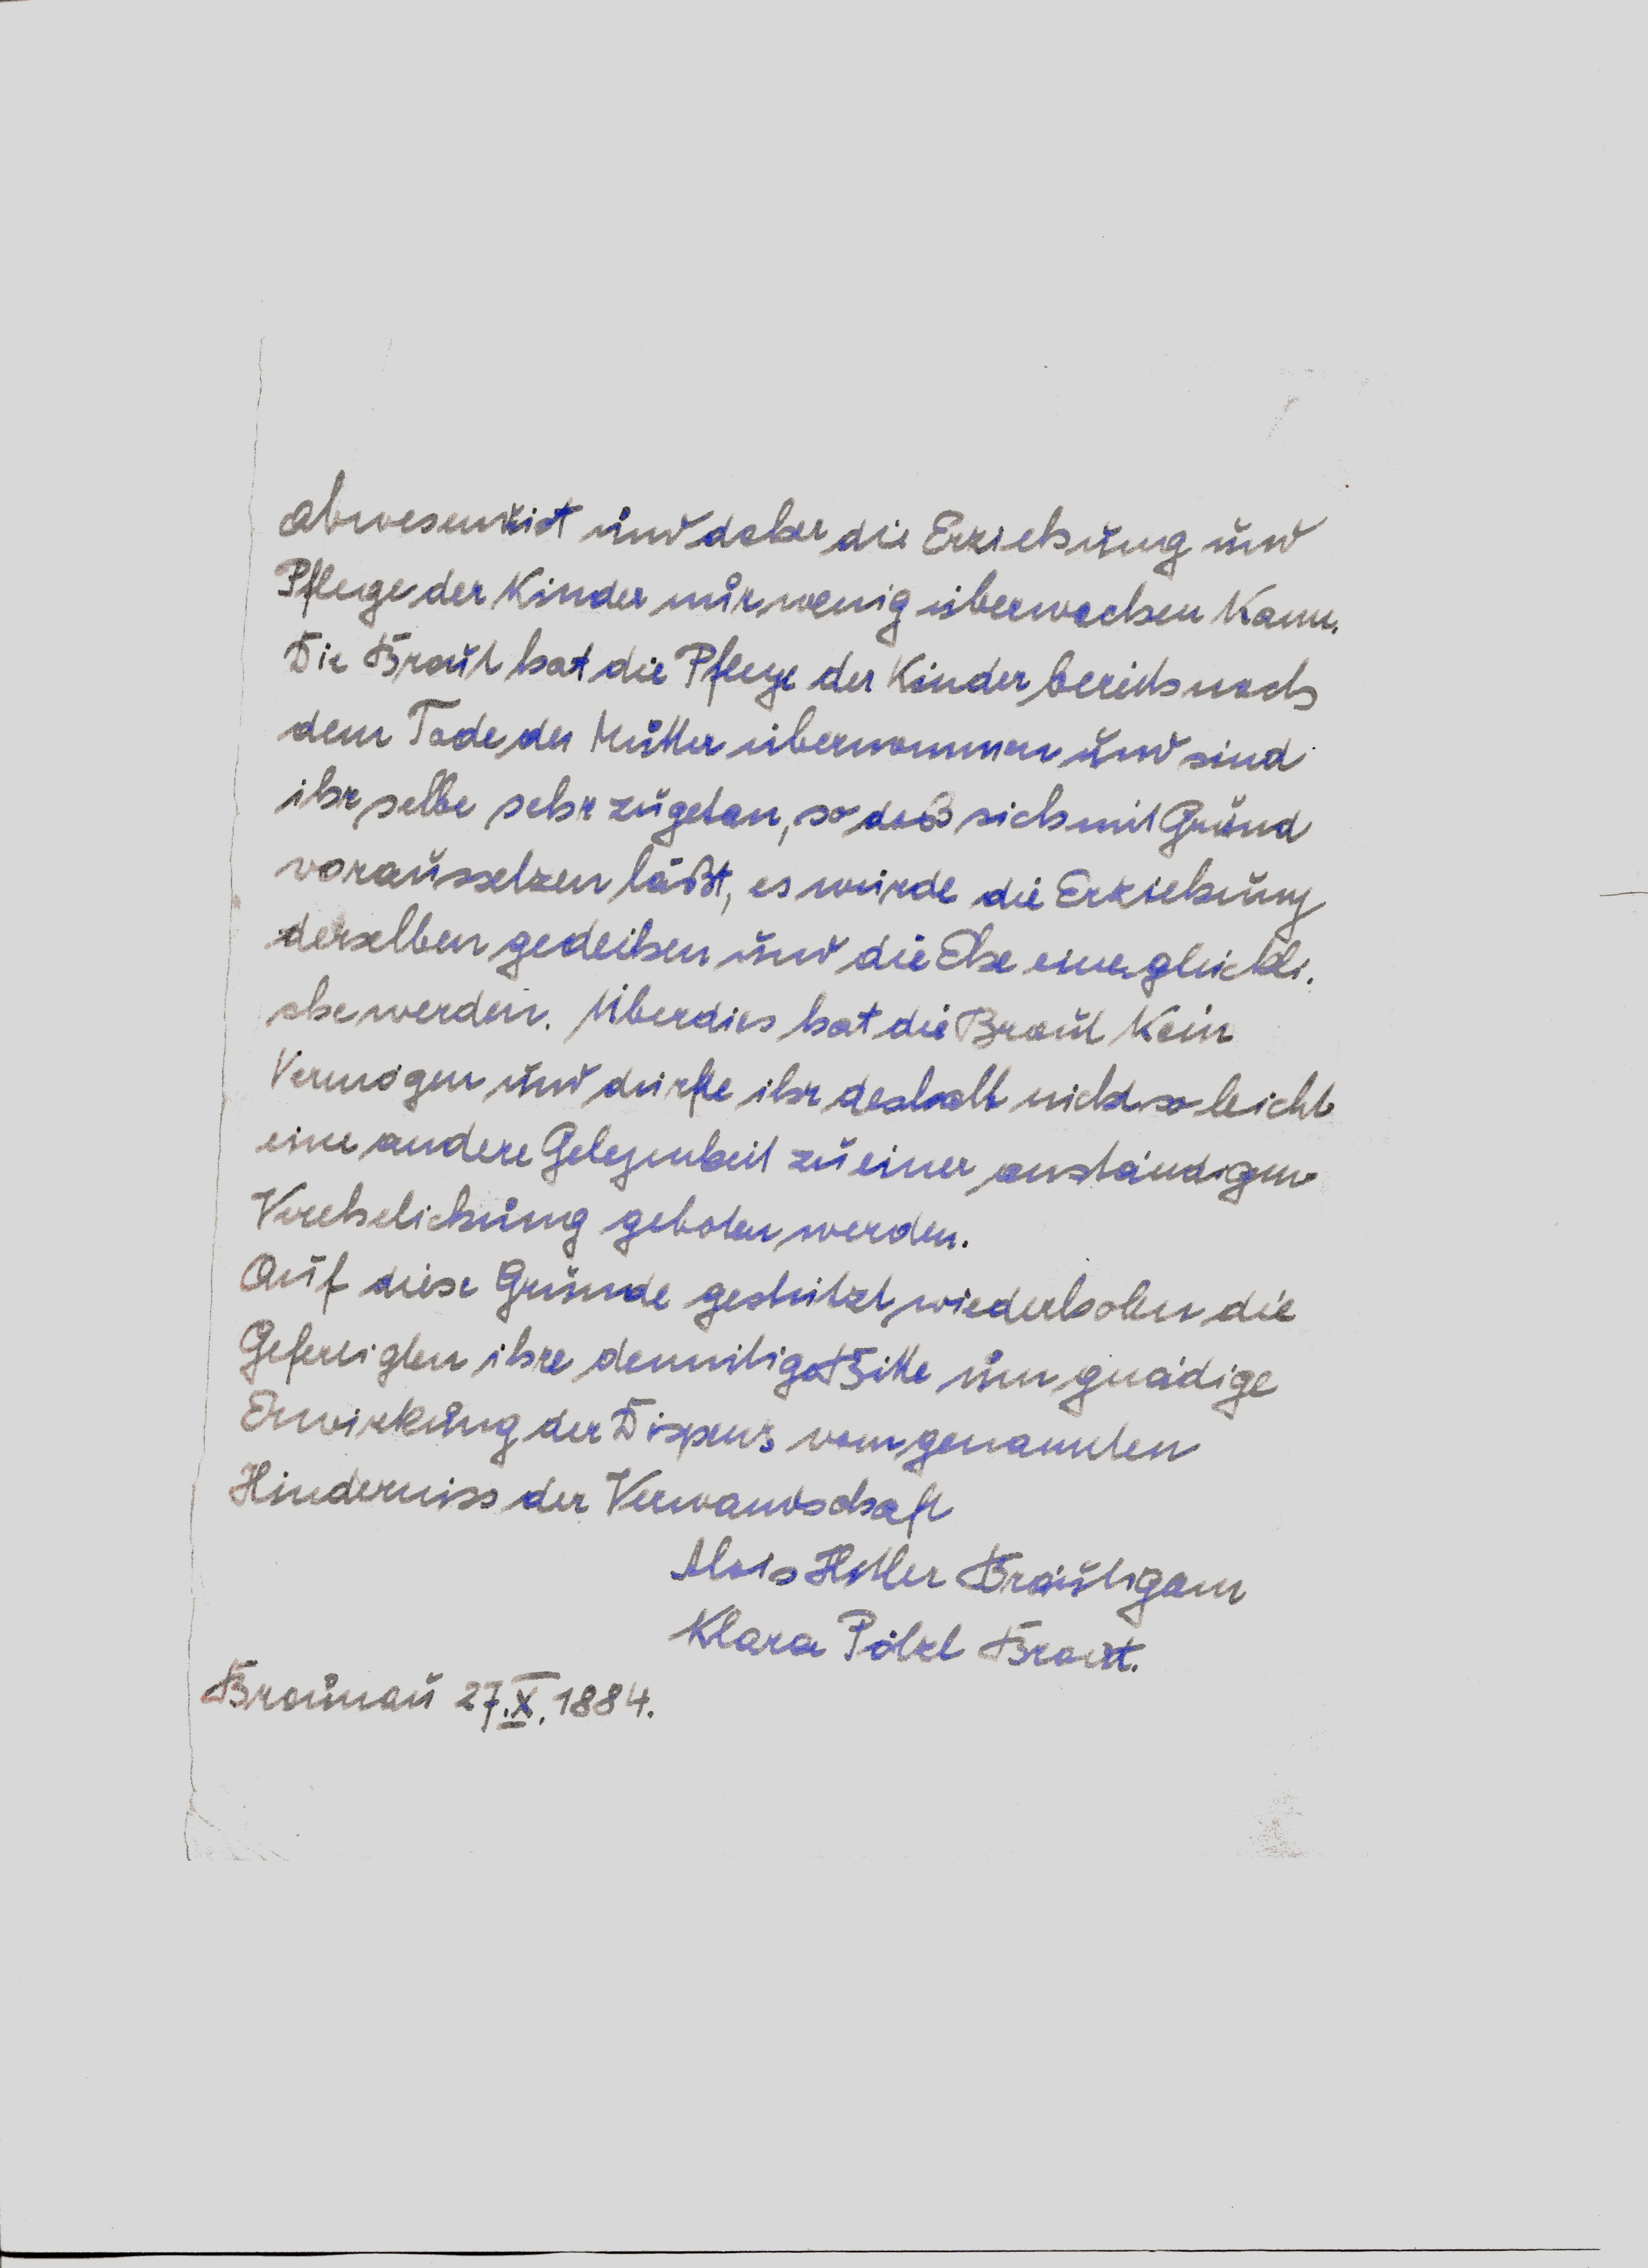 abwesend ist und daher die Erziehung und
Pflege der Kinder nur wenig überwachen kann.
Die Braut hat die Pflege der Kinder bereits nach
dem Tode der Mutter übernommen und sind
ihr selbe sehr zugetan, so daß sich mit Grund
voraussetzen läßt, es würde die Erziehung
derselben gedeihen und die Ehe eine glückli.
che werden. Überdies hat die Braut kein
Vermögen und dürfte ihr deshalb nicht so leicht
eine andere Gelegenheit zu einer anständigen
Verehelichung geboten werden.
Auf diese Gründe gestützt wiederholen die
Gefertigten ihre demütige Bitte um gnädige
Erwirkung der Dispens vom genannten
Hinderniss der Verwandschaft
Alois Hitler Bräutigam
Klara Pölzl Braut.
Braunau 27.X.1884.